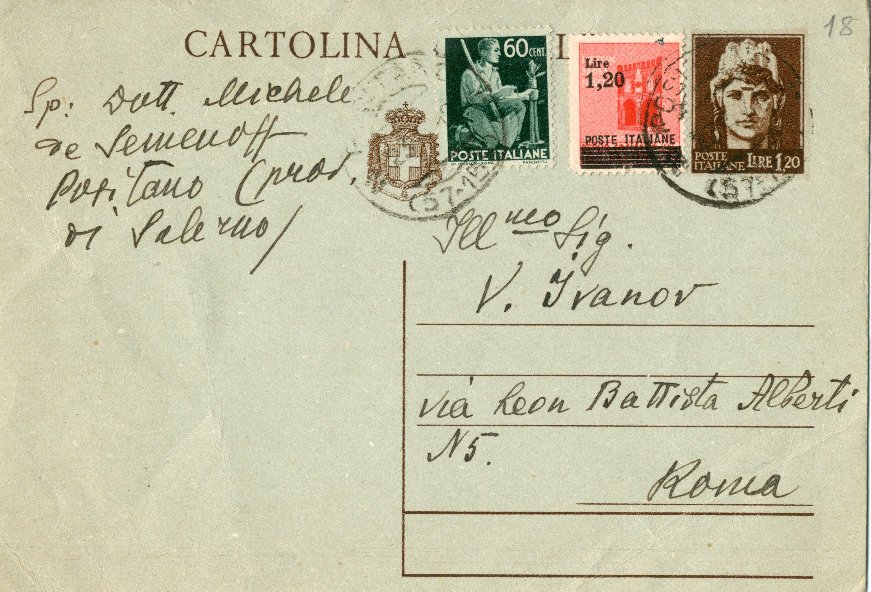 18
CARTOLINA
Sp: Dott. Michele
de Semenoff
Positano (prov.
di Salerno)
60 CENT.
POSTE ITALIANE
Lire
1,20
POSTE ITALIANE
POSTE
ITALIANE LIRE 1,20
(57-15
(57-
Ill mo Sig.
V. Ivanov
via Leon Battista Alberti
N5.
Roma